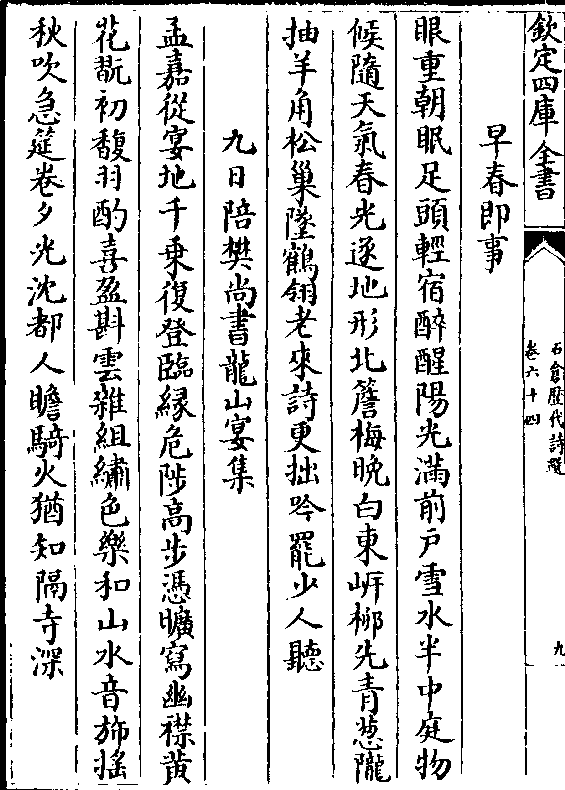 欽定四庫全書
石倉歷代詩選
卷六十四
九
早春即事
眼重朝眠足頭輕宿醉醒陽光滿前戶雪水半中庭物
候隨天氣春光逐地形北簷梅晚白東岍柳先青葱隴
抽羊角松巢墜鶴翎老來詩更拙吟罷少人聽
九日陪樊尚書龍山宴集
孟嘉從宴地千乗復登臨縁危陟髙步憑曠寫幽襟黄
花翫初馥羽酌喜盈斟雲雜組繡色樂和山水音斾揺
秋吹急筵卷夕光沈都人瞻騎火猶知隔寺深